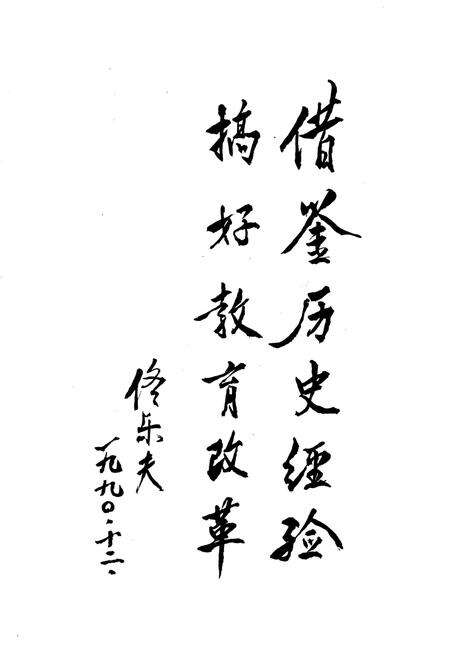 借鉴历史经验
搞好教育改革
佟乐夫
一九九〇·十二·